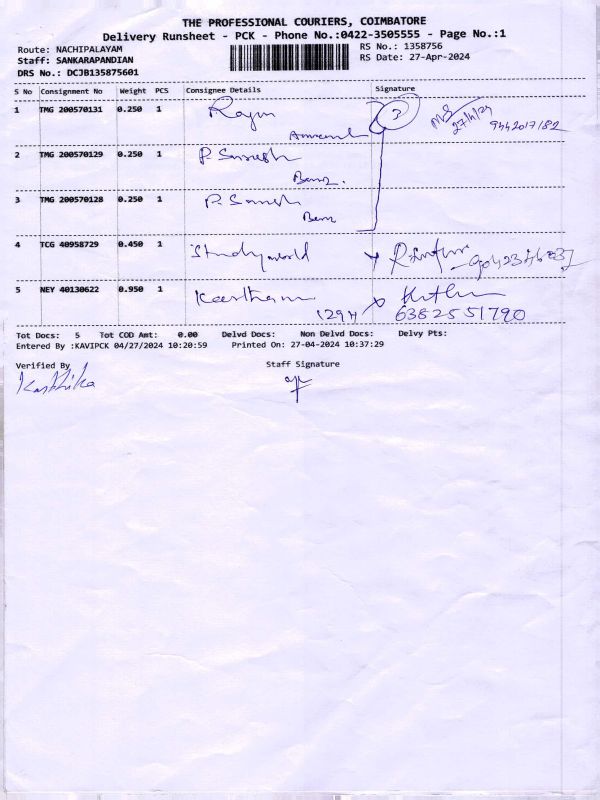 THE PROFESSIONAL COURIERS, COIMBATORE
Delivery Runsheet - PCK - Phone No.:0422-3505555 - Page No.:1
Route: NACHIPALAYAM
RS No.: 1358756
Staff: SANKARAPANDIAN
RS Date: 27-Apr-2024
DRS No.: DCJB135875601
S No Consignment No Weight PCS Consignee Details Signature
1 TMG 200570131 0.250 1 3
27/4/24
2 TMG 200570129 0.250 1
3 TMG 200570128 0.250 1
4 TCG 40958729 0.450 1
5 NEY 40130622 0.950 1
6382551790
Tot Docs: 5 Tot COD Amt: 0.00 Delvd Docs: Non Delvd Docs: Delvy Pts:
Entered By :KAVIPCK 04/27/2024 10:20:59 Printed On: 27-04-2024 10:37:29
Verified By Staff Signature
Karthika